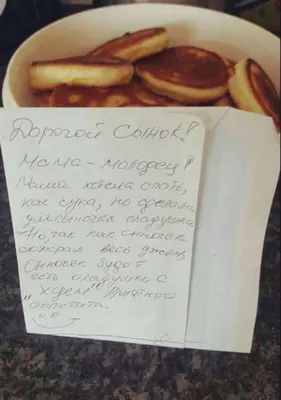 Дорогой сынок!
Мама - молодец!
Мама хотела спать,
как сука, но сделала
для сыночка оладушки
Но, так как сыночек
сожрал весь джем,
Сыночек будет
есть оладушки с
"хуем" Приятного
аппетита.